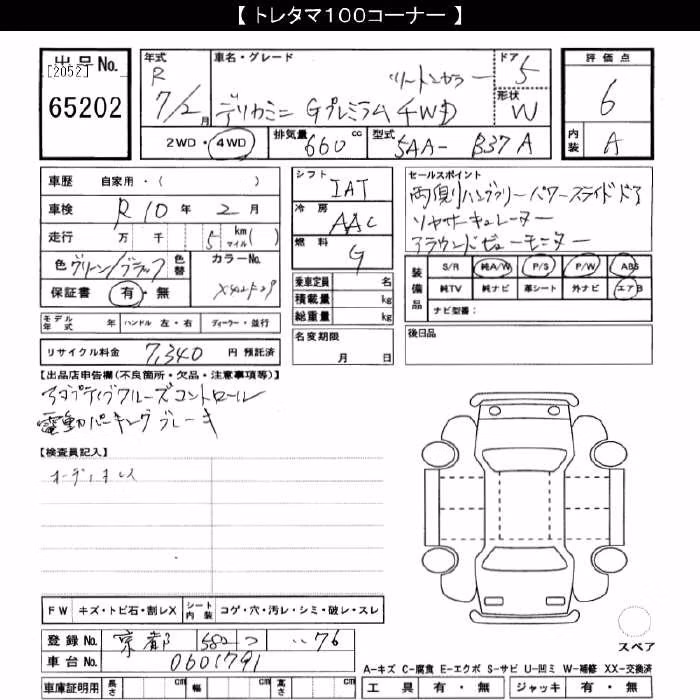 【 トレタマ100コーナー 】
出品No.
[2052]
65202
年式 R 7/2月
車名・グレード ツートンカラー
デリカミニ Gプレミアム 4WD
ドア 5
形状 W
評価点 6
内装 A
2WD・4WD 排気量 660 cc 型式 5AA- B37A
車歴 自家用・( )
車検 R10年 2月
走行 万 千 5 km マイル ( )
色 グリーン/ブラック 色替 カラーNo.
保証書 有・無
モデル年式 年 ハンドル 左・右 ディーラー・並行
リサイクル料金 7,340 円 預託済
シフト IAT
冷房 AAC
燃料 G
乗車定員 名
積載量 kg
総重量 kg
名変期限 月 日
セールスポイント
両側ハンズフリーパワースライドドア
ソナサーキュレーター
アラウンドビューモニター
装備品 S/R 純A/W P/S P/W ABS
純TV 純ナビ 革シート 外ナビ エアB
ナビ型番:
後日品
【出品店申告欄(不良箇所・欠品・注意事項等)】
アダプティブクルーズコントロール
電動パーキングブレーキ
【検査員記入】
オーディオレス
FW キズ・トビ石・割レX シート内装 コゲ・穴・汚レ・シミ・破レ・スレ
登録No. 京都 582 つ ・・76
車台No. 0601791
車庫証明用 長さ cm 幅 cm 高さ cm
スペア
A-キズ C-腐食 E-エクボ S-サビ U-凹ミ W-補修 XX-交換済
工具 有・無 ジャッキ 有・無